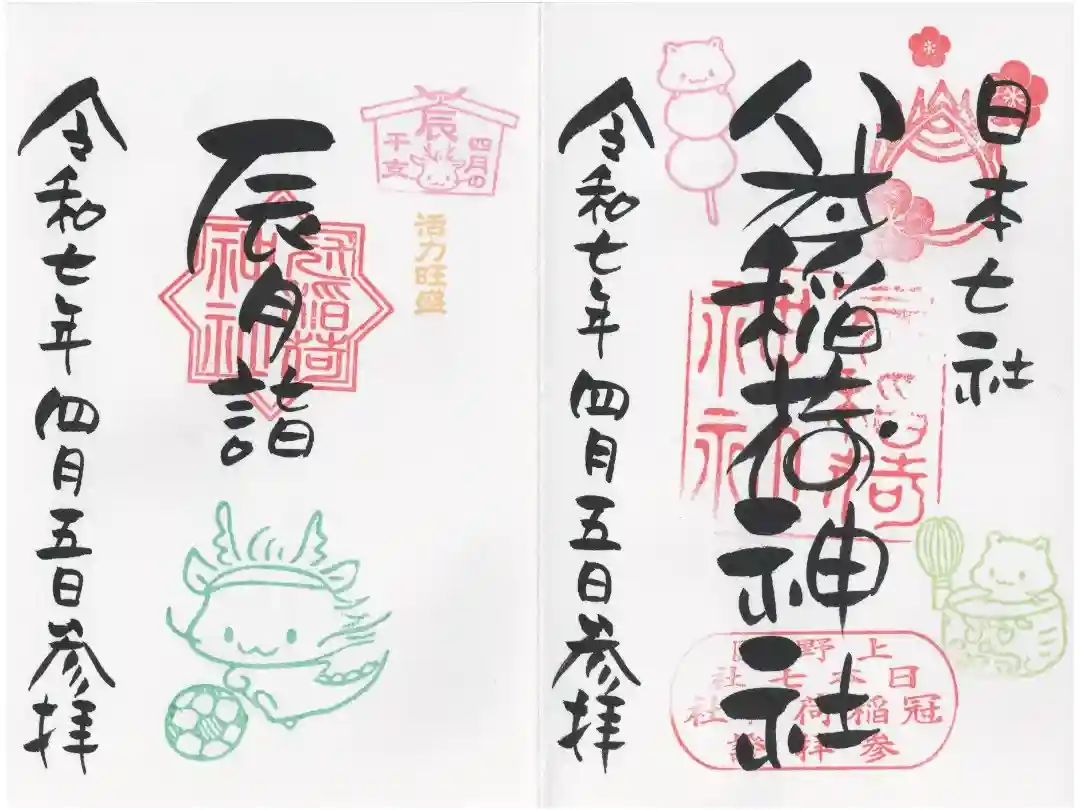 日本七社
冠稲荷神社
冠稲荷神社
上野國
日本七社
冠稲荷神社
参拝證
令和七年四月五日参拝
四月の
辰
干支
活力旺盛
辰月詣
冠稲荷神社
令和七年四月五日参拝